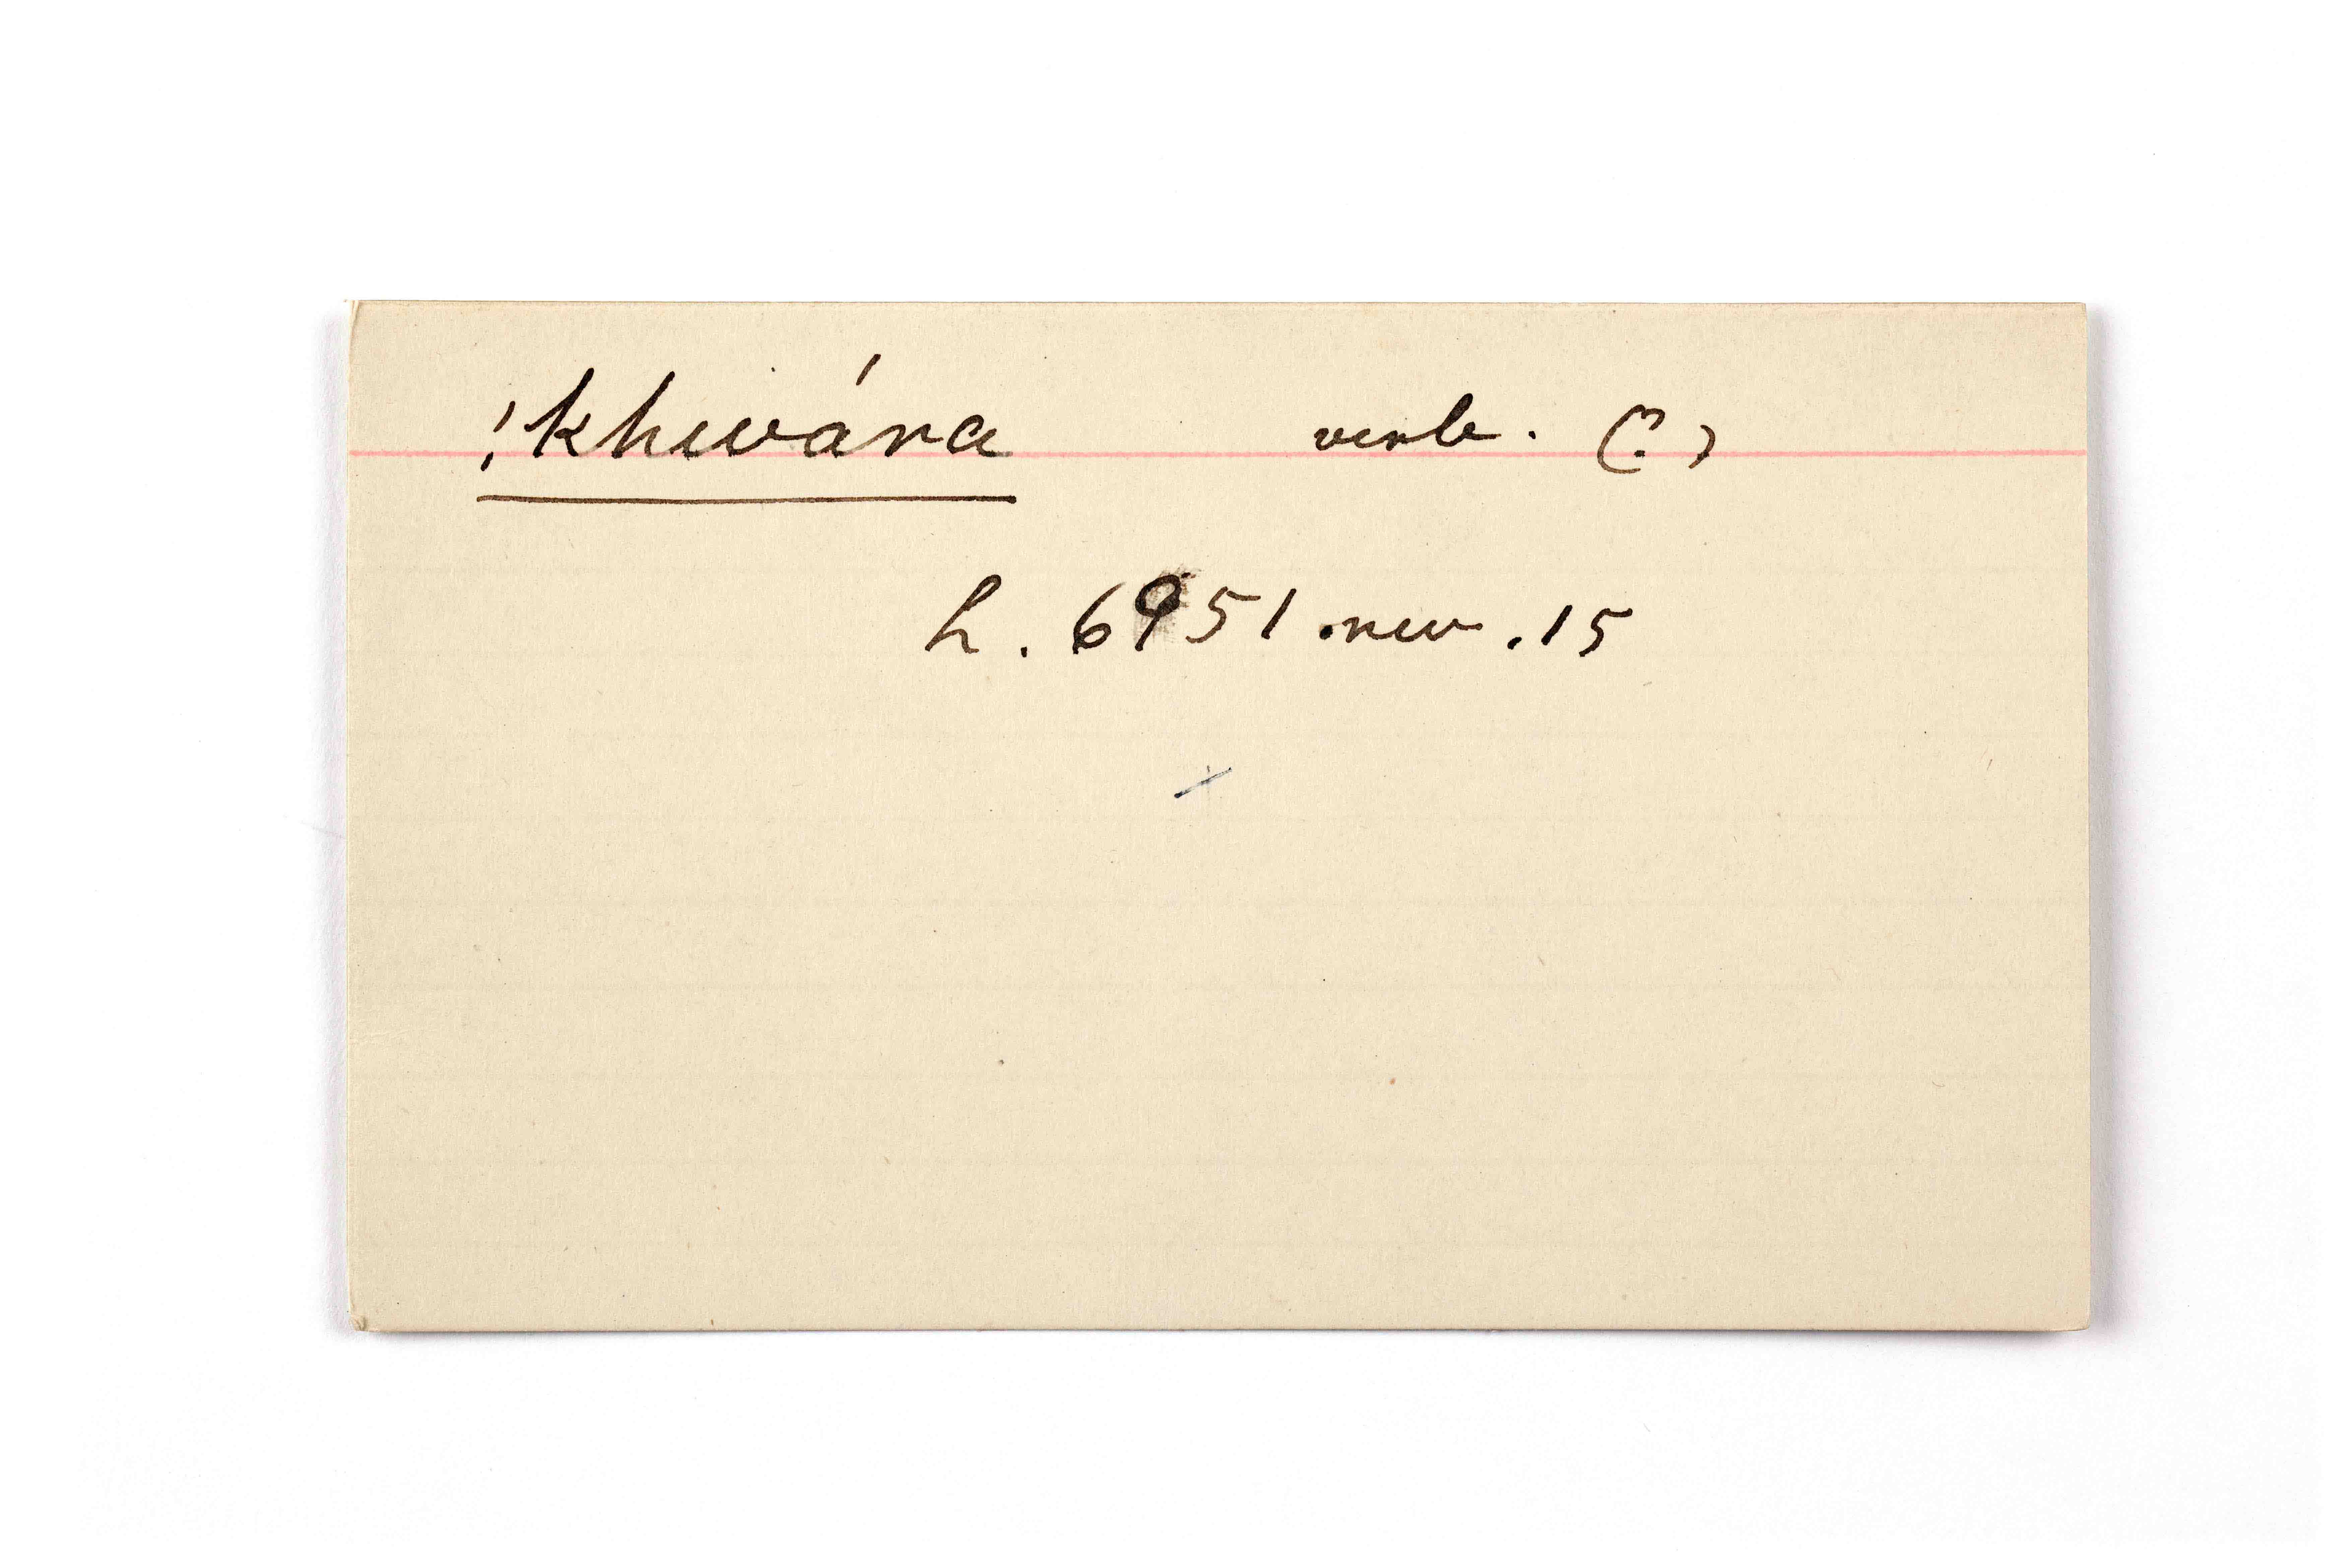 !khwára verb. (?)
L. 6951.rev.15